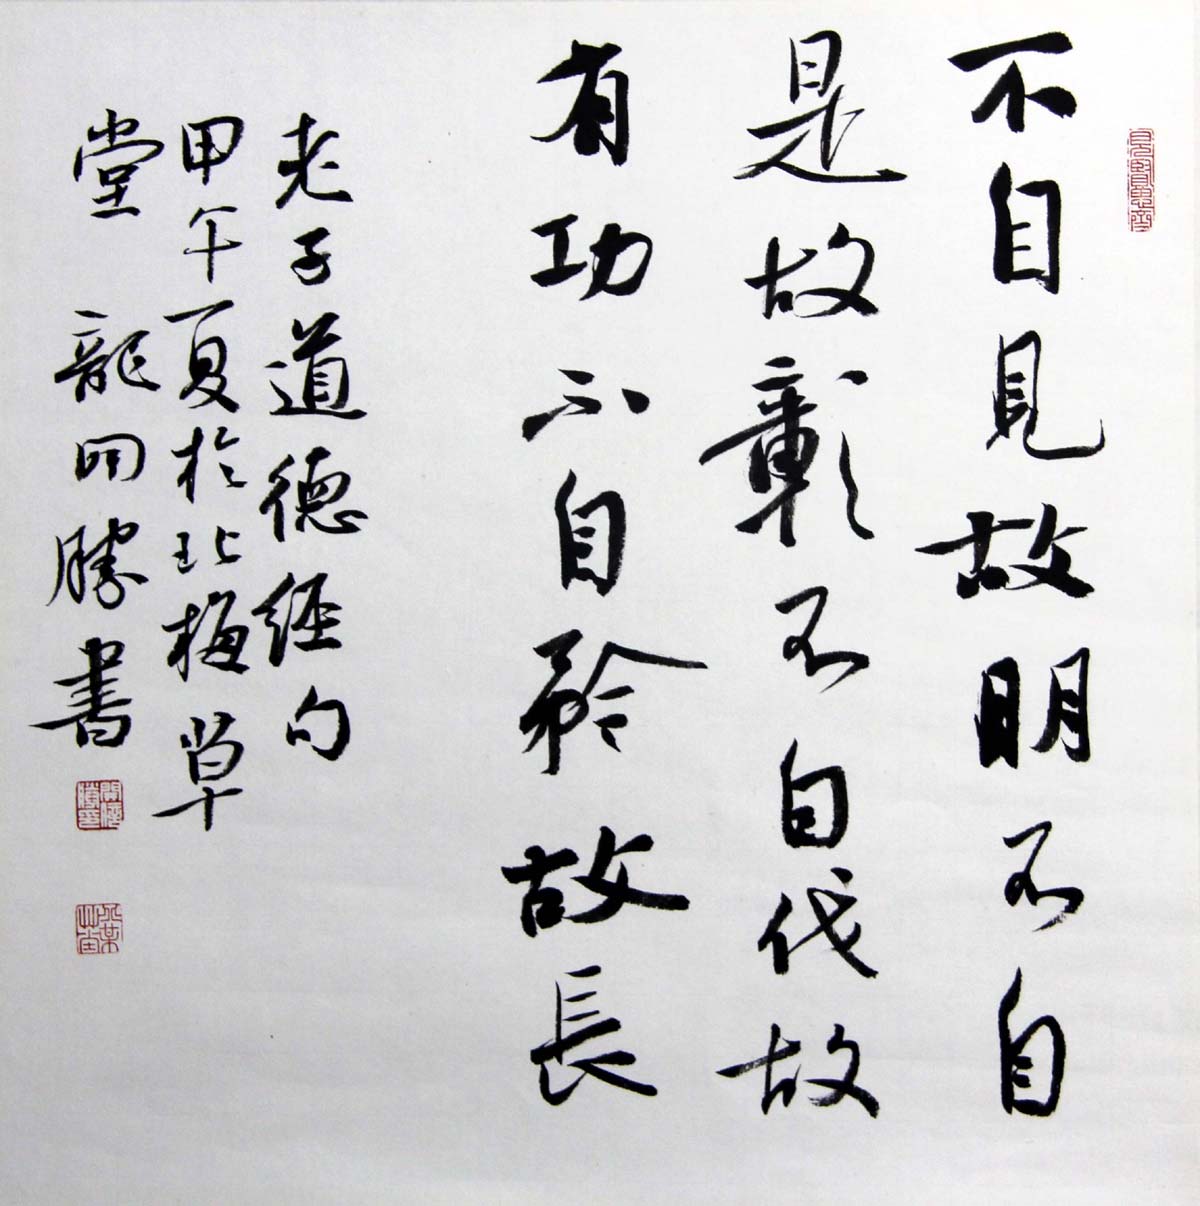 見賢思齊
不自見故明不自
是故彰不自伐故
有功不自矜故長
老子道德經句
甲午夏於北梅草
堂 龍開勝書